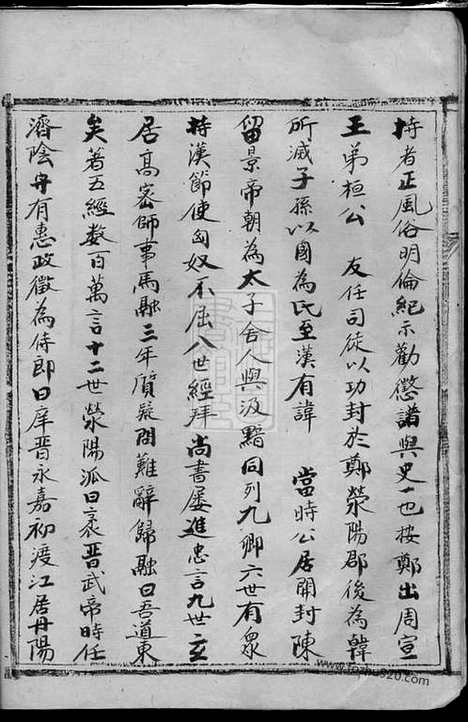 持者正風俗明倫紀示勸懲譜與史一也按鄭出周宣
王弟桓公 友任司徒以功封於鄭滎陽郡後為韓
所滅子孫以國為氏至漢有諱 當時公居開封陳
留景帝朝為太子舍人與汲黯同列九卿六世有眾
持漢節使匈奴不屈八世經拜尚書屢進忠言九世玄
居高密師事馬融三年質疑問難辭歸融曰吾道東
矣著五經数百萬言十二世滎陽派曰袤晋武帝時任
濟陰守有惠政徵為侍郎曰庠晋永嘉初渡江居丹陽
www.fozhu920.com